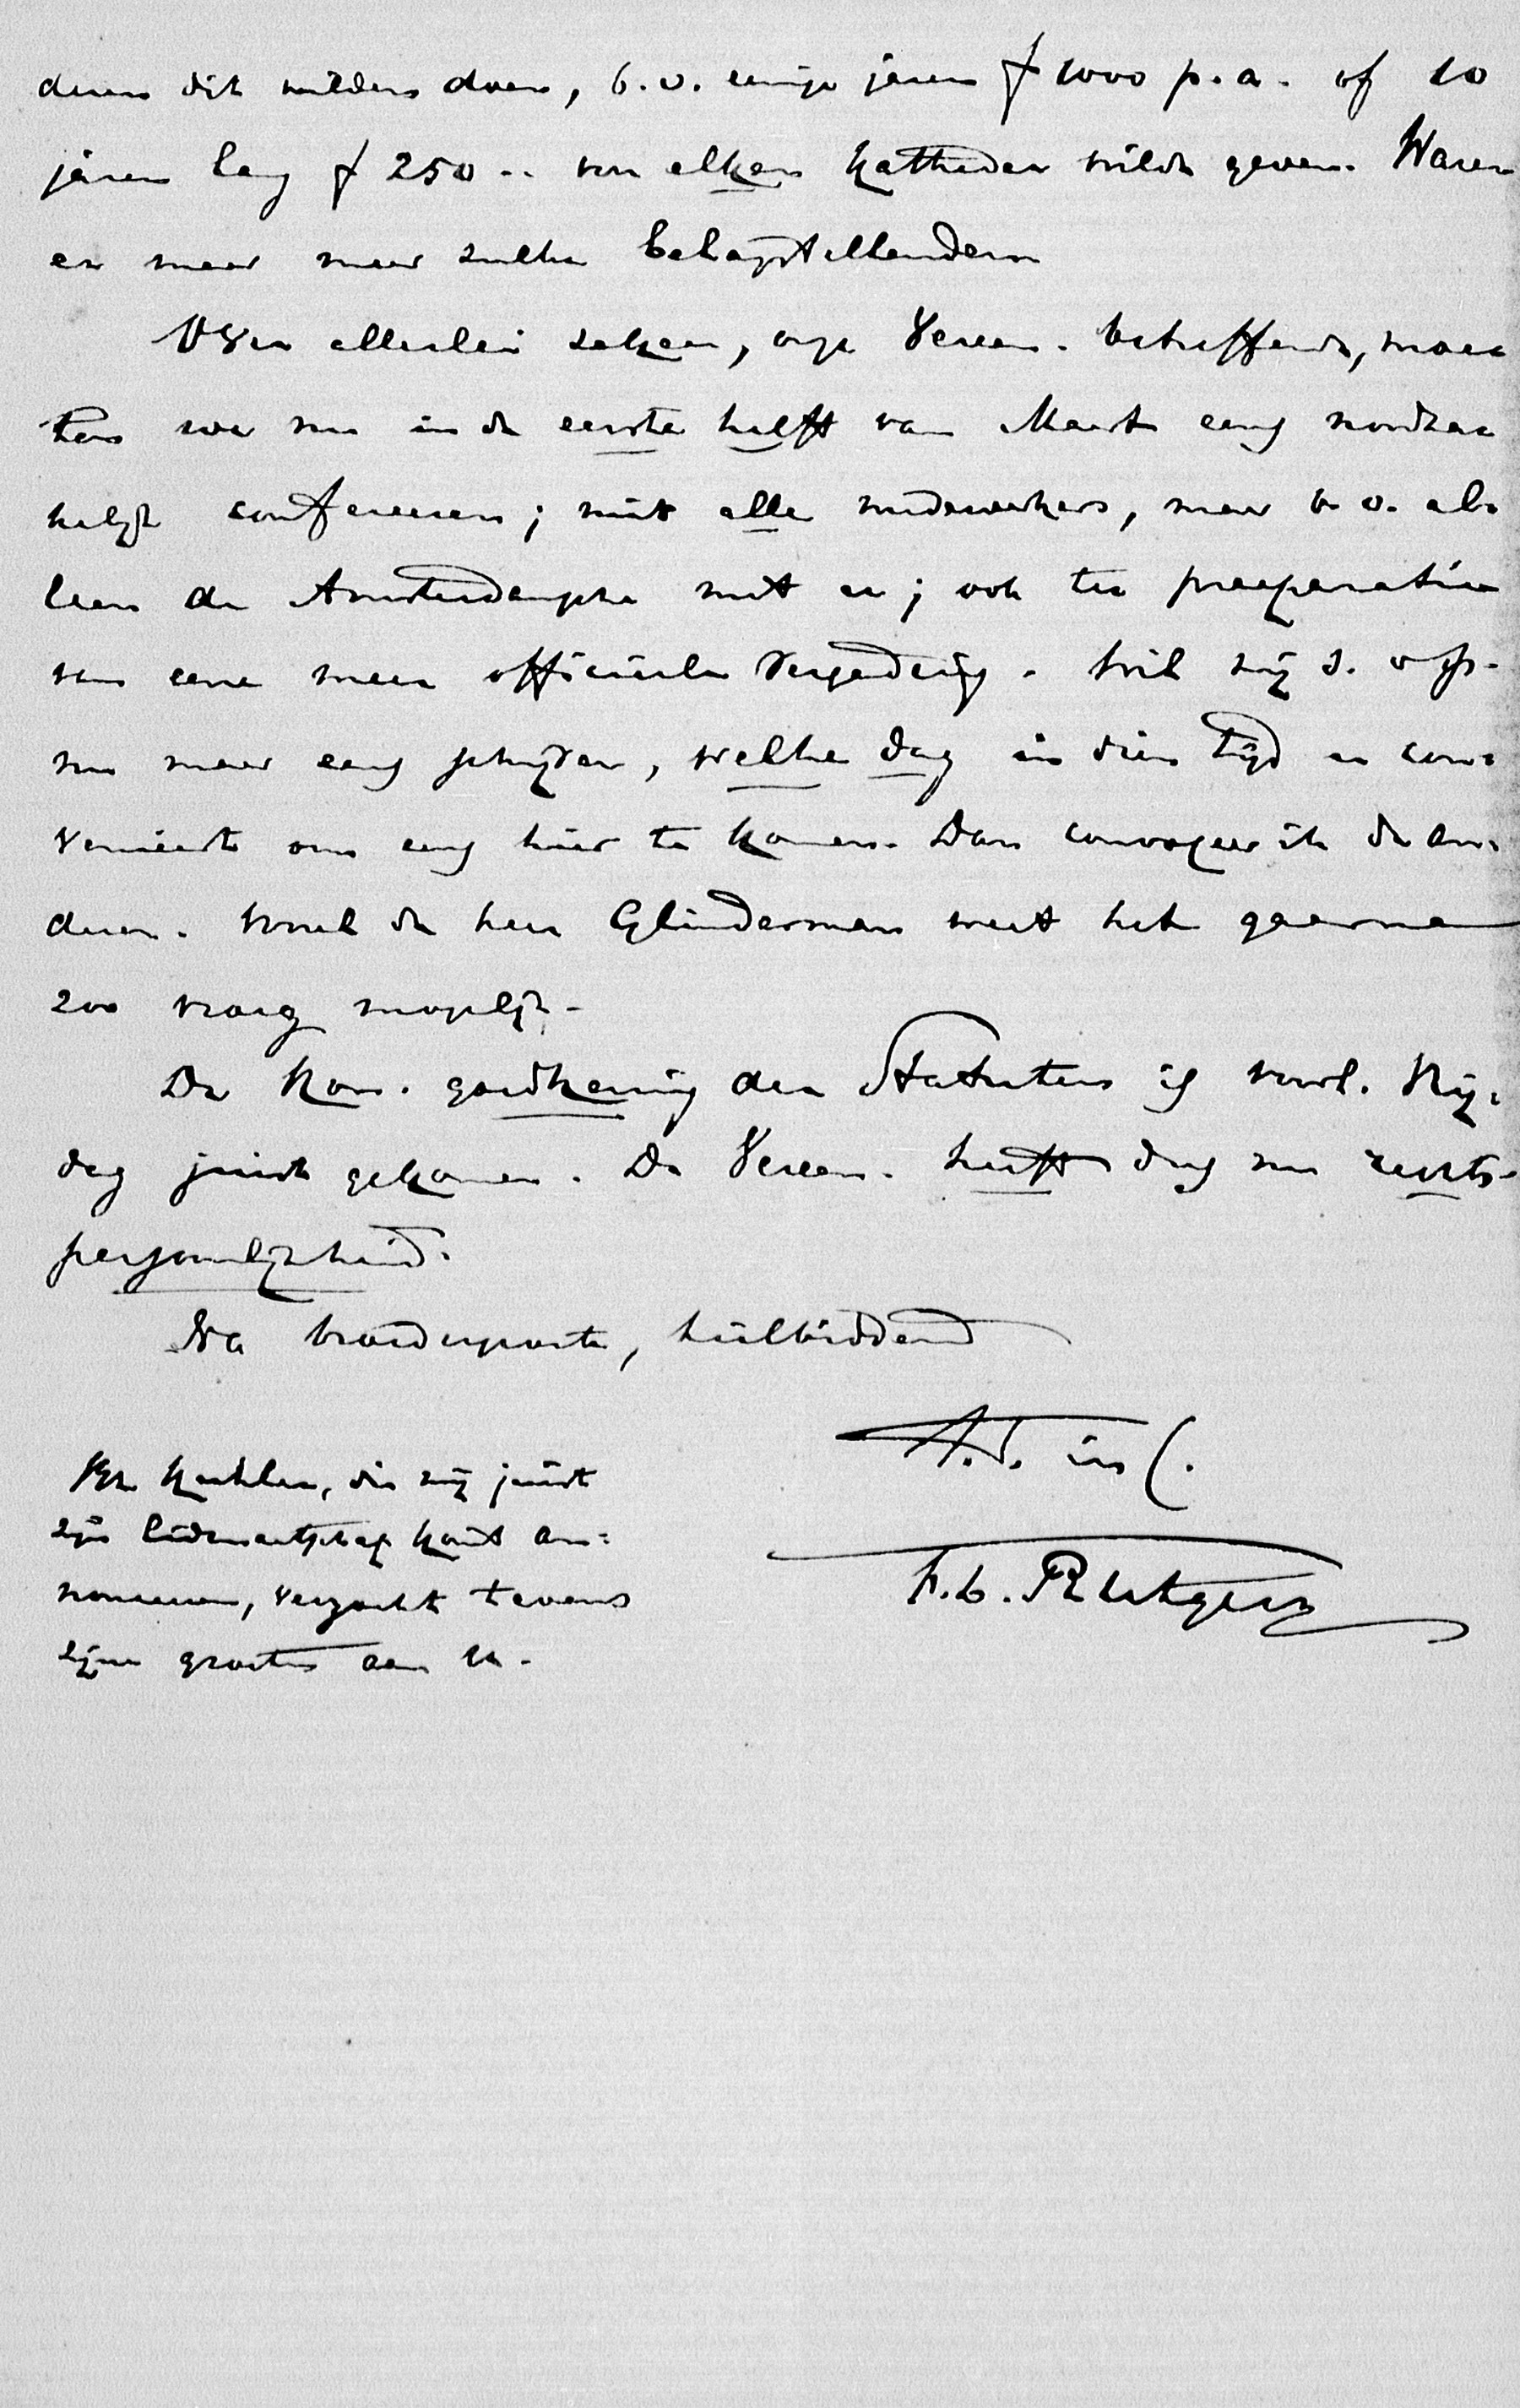 deren dit wilden doen, b.v. eenige jaren f 1000 p.a. of 10
jaren lang f 250.. voor elken katheder wilde geven. Waren
er maar meer zulke belangstellenden
Over allerlei zaken, onze Vereen. betreffende, moes-
ten we nu in de eerste helft van Maart eens noodza-
kelijk confereeren; niet alle medewerkers, maar b.v. al-
leen de Amsterdamsche met u; ook ter praeparatie
van eene meer officieele Vergadering. Wil mij s. v. p.
nu maar eens schrijven, welke dag in dien tijd u con-
venieert om eens hier te komen. Dan convoceer ik de an-
deren. Vooral de heer Glinderman weet het gaarne
zoo vroeg mogelijk.
De Kon. goedkeuring der Statuten is voorl. Vrij-
dag juist gekomen. De Vereen. heeft dus nu rechts-
persoonlijkheid.
Na broedergroete, heilbiddend
t.t. in C.
F.L. Rutgers
Ds. Kuchler, die mij juist
zijn lidmaatschap komt an-
nonceeren, verzoekt tevens
zijne groeten aan u.